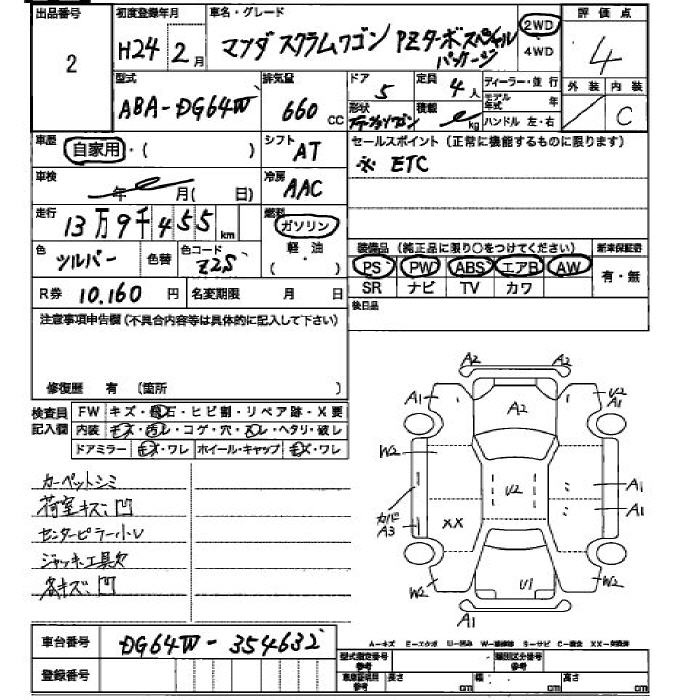 出品番号 初度登録年月 車名・グレード 2WD 評価点
2 H24 2月 マツダ スクラムワゴン PZターボスペシャルパッケージ 4WD 4
型式 排気量 ドア 定員 ディーラー・並行 外装 内装
ABA-DG64W 660cc 5 4人 モデル年式 年
形状 積載 kg ハンドル 左・右 C
車歴 自家用・( ) シフト AT セールスポイント(正常に機能するものに限ります)
※ ETC
車検 年 月( 日) 冷房 AAC
走行 13万9千455km 燃料 ガソリン
軽・油
( )
色 シルバー 色替 色コード Z2S 装備品(純正品に限り○をつけてください) 新車保証書
PS PW ABS エアB AW 有・無
SR ナビ TV カワ
R券 10,160円 名変期限 月 日 後日品
注意事項申告欄(不具合内容等は具体的に記入して下さい)
修復歴 有 (箇所 )
検査員記入欄 FW キズ・ ・ヒビ割・リペア跡・X要
内装 ・ ・コゲ・穴・ ・ヘタリ・破レ
ドアミラー キズ・ワレ ホイール・キャップ キズ・ワレ
カーペットシミ
荷室キズ、凹
センターピラー小U
ジャッキ、工具欠
各キズ、凹
A2 A2
A1 A2 U2
A1
W2 W2
U2 A1
A1
カバド
A3
XX
W2 U1 W2
A1
車台番号 DG64W-354632
A-キズ XX-交換済
登録番号 型式指定番号 参考 類別区分番号 参考
車庫証明用 参考 長さ cm 幅 cm 高さ cm